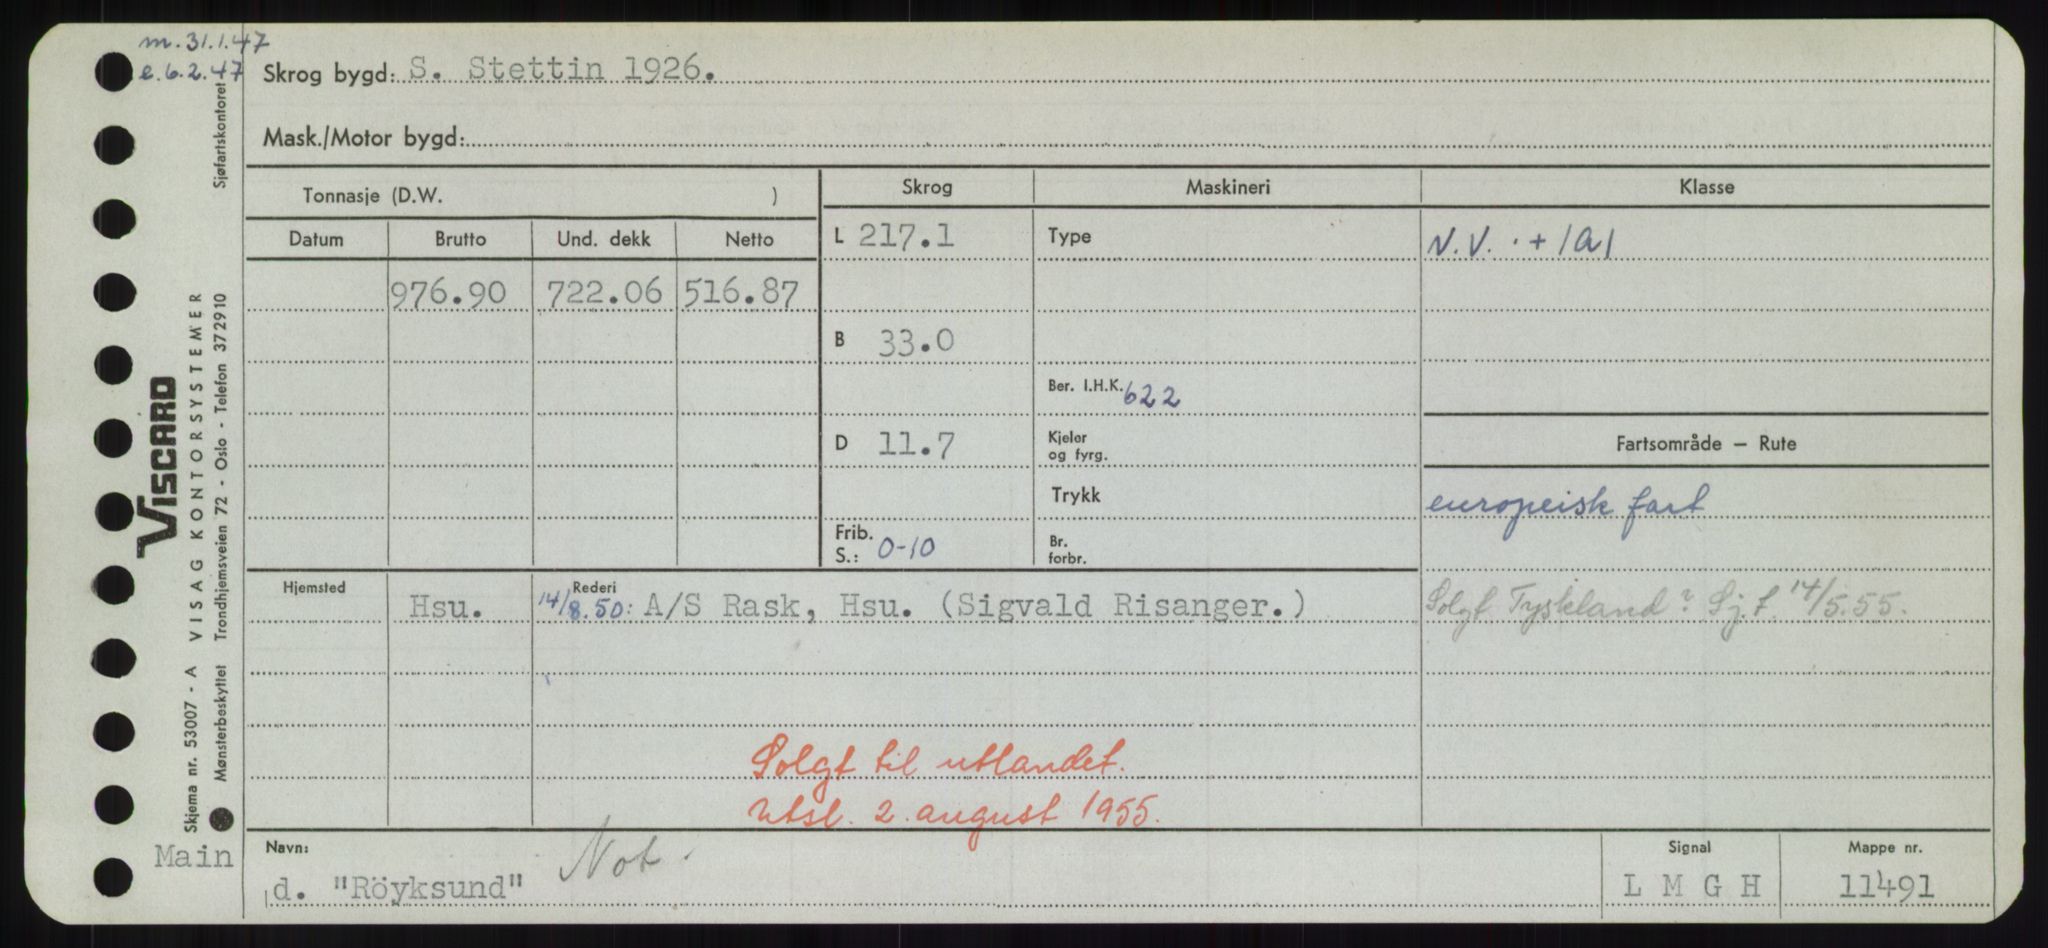 m. 31.1.47
e. 6.2.47
Skrog bygd: S. Stettin 1926.
Mask./Motor bygd:
Tonnasje (D.W. )
Skrog
Maskineri
Klasse
Datum Brutto Und. dekk Netto
L 217.1
Type
N.V. · + 1A1
976.90 722.06 516.87
B 33.0
Ber. I.H.K. 622
D 11.7
Kjeler
og fyrg.
Fartsområde — Rute
Trykk
europeisk fart
Frib.
S.: 0-10
Br.
forbr.
Hjemsted
Rederi
Hsu. 14/8.50: A/S Rask, Hsu. (Sigvald Risanger.)
Solgt Tyskland? Sj.f. 14/5.55.
Solgt til utlandet.
Utsl. 2. august 1955.
Navn:
d. "Röyksund"
Not.
Signal
L M G H
Mappe nr.
11491
Main
VISCARD
Skjema nr. 53007 - A VISAG KONTORSYSTEMER
Mønsterbeskyttet Trondhjemsveien 72 - Oslo - Telefon 372910 Sjøfartskontoret